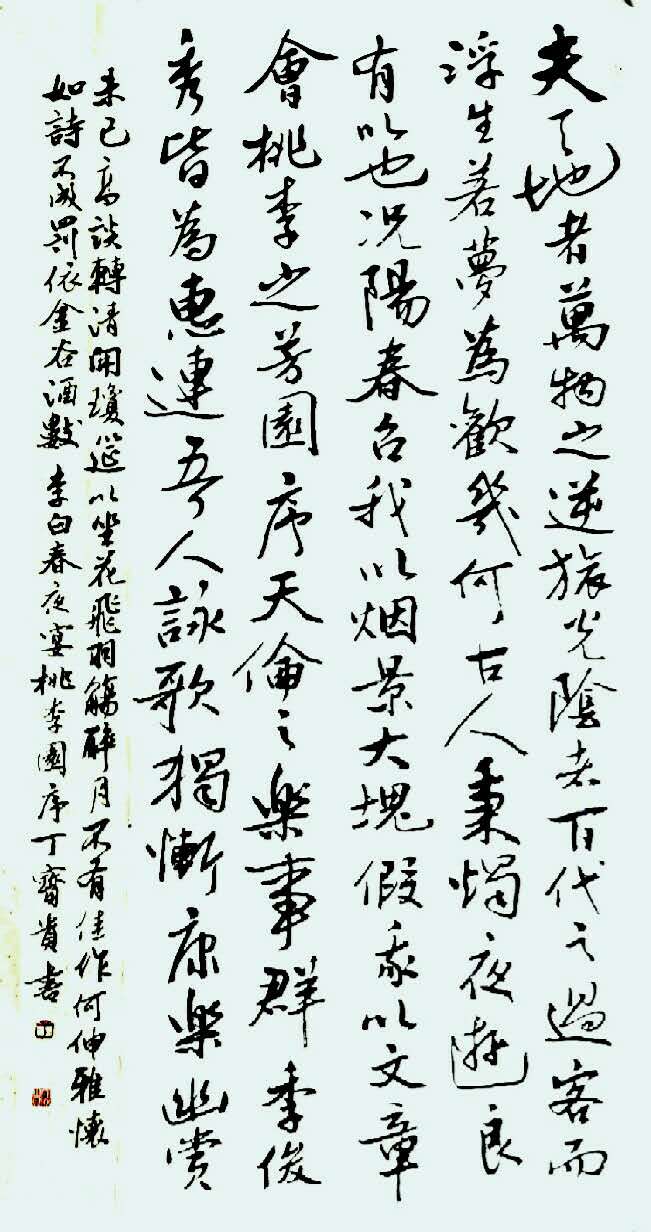 夫天地者萬物之逆旅光陰者百代之過客而
浮生若夢為歡幾何古人秉燭夜遊良
有以也况陽春召我以烟景大塊假我以文章
會桃李之芳園序天倫之樂事群季俊
秀皆為惠連吾人詠歌獨慚康樂幽賞
未已高談轉清開瓊筵以坐花飛羽觴醉月不有佳作何伸雅懷
如詩不成罰依金谷酒數 李白春夜宴桃李園序丁齊貴書